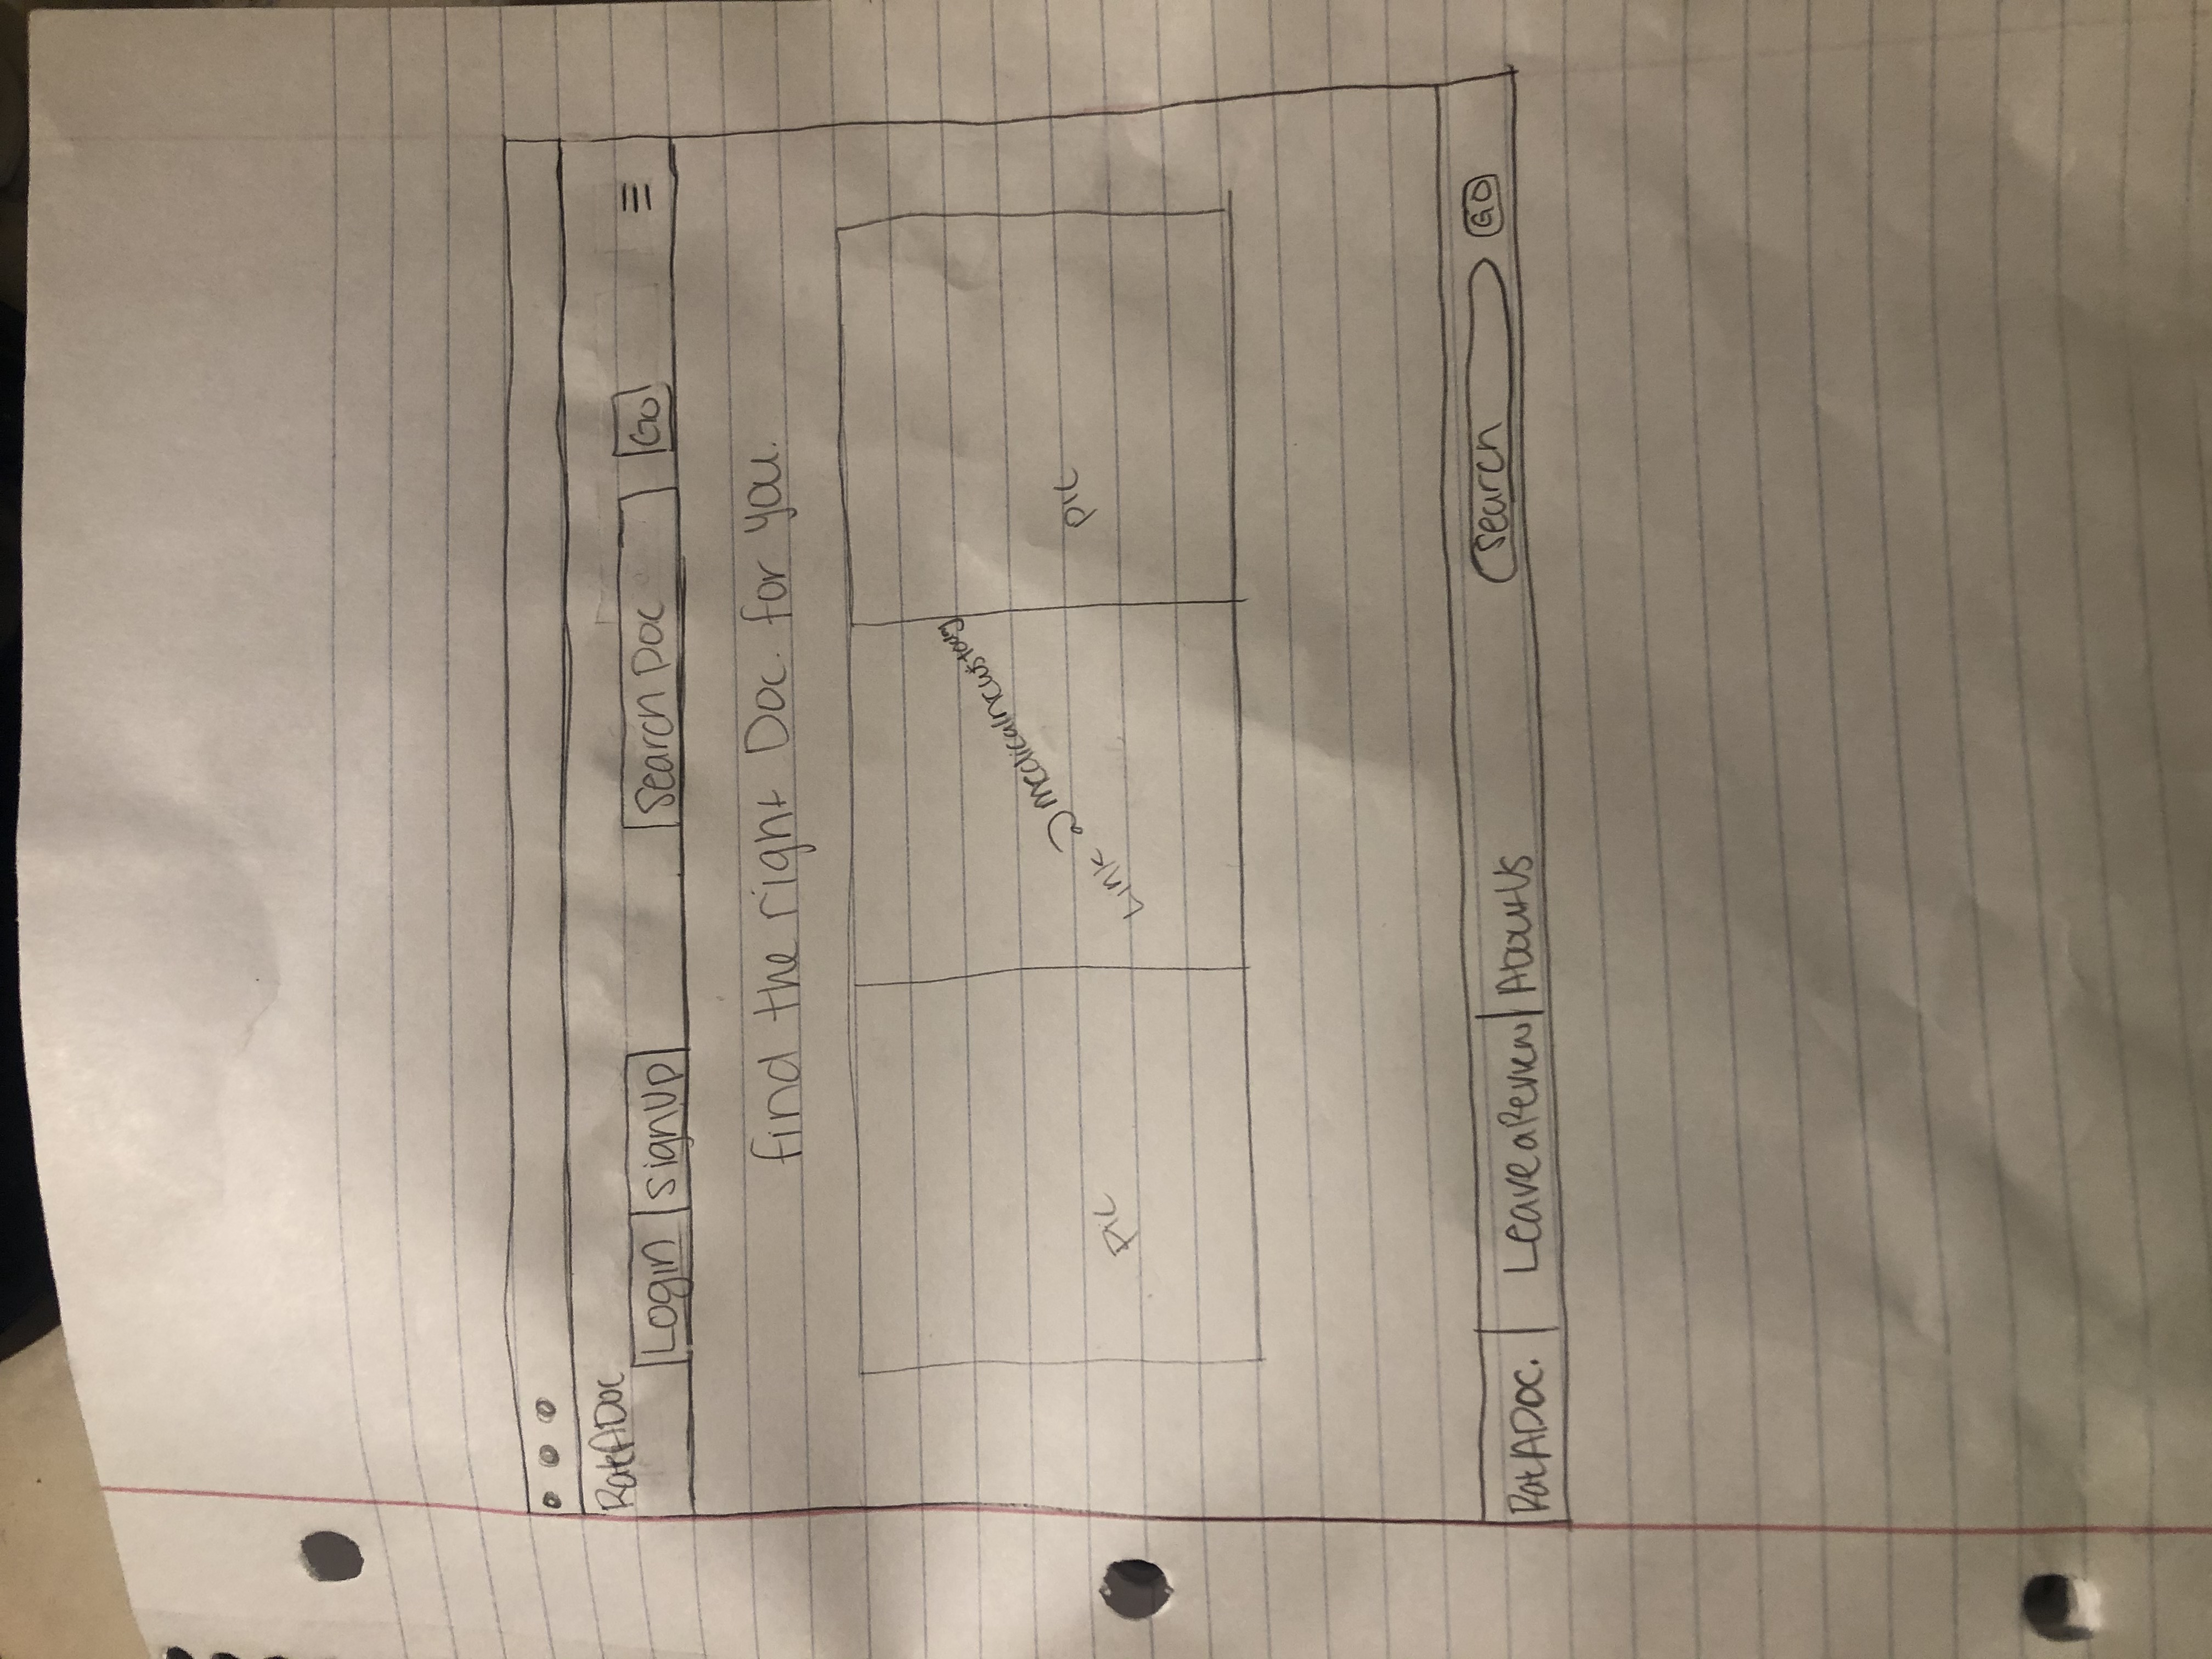 RateADoc
Login SignUp Search Doc Go
find the right Doc. for you.
Pic
Link @medicalnewstoday
pic
RateADoc. Leave a Review AboutUs Search GO